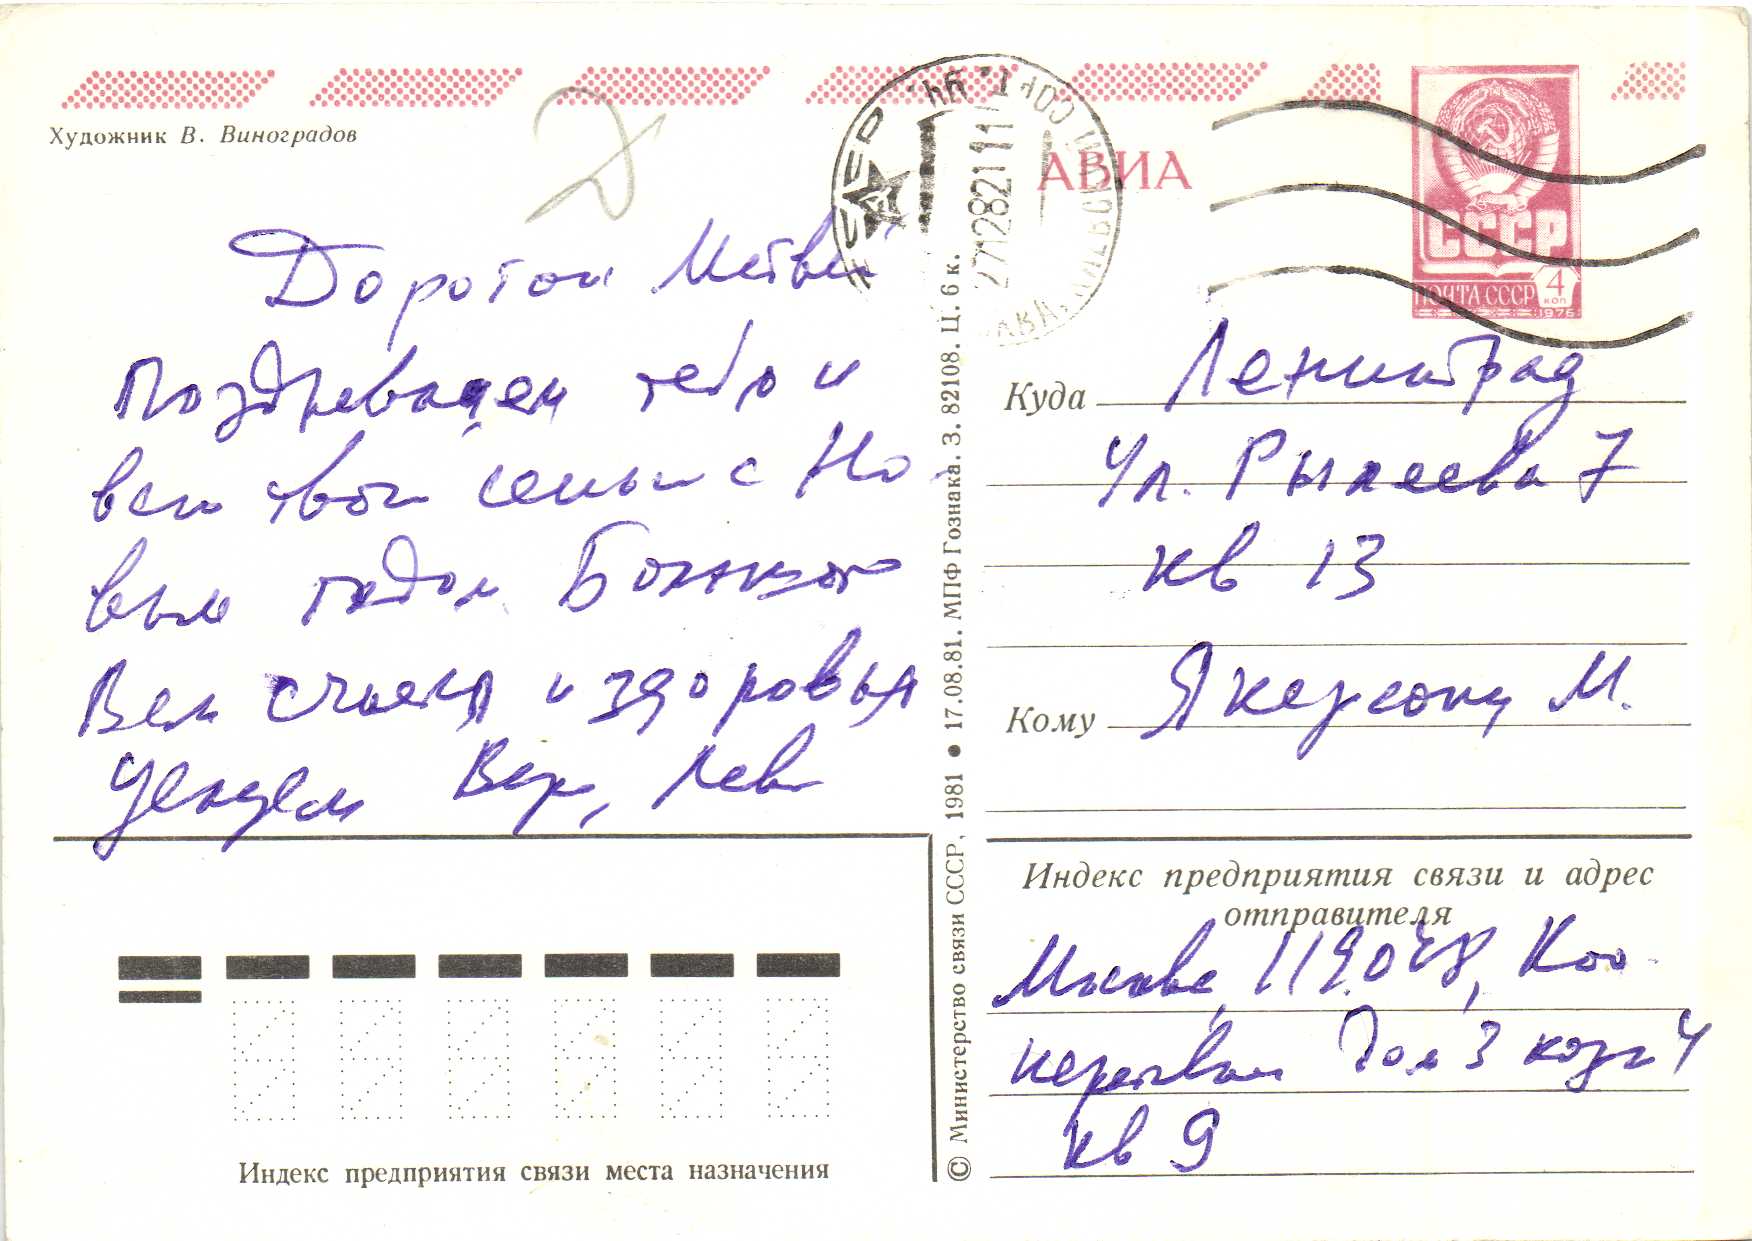 Художник В. Виноградов
АВИА
СССР
ПОЧТА СССР
4
КОП
1976
271282 11
Дорогой
Поздравляем тебя и
всю твою семью с Но
вым годом Большого
Вам счастья и здоровья
Лев
Куда
Ленинград
Ул. Рылеева 7
кв 13
Кому
Якерсону М.
Индекс предприятия связи и адрес
отправителя
Москва, 119048, Коо
перативная дом 3 корп 4
кв 9
Индекс предприятия связи места назначения
© Министерство связи СССР, 1981 ● 17.08.81. МПФ Гознака. З. 82108. Ц. 6 к.